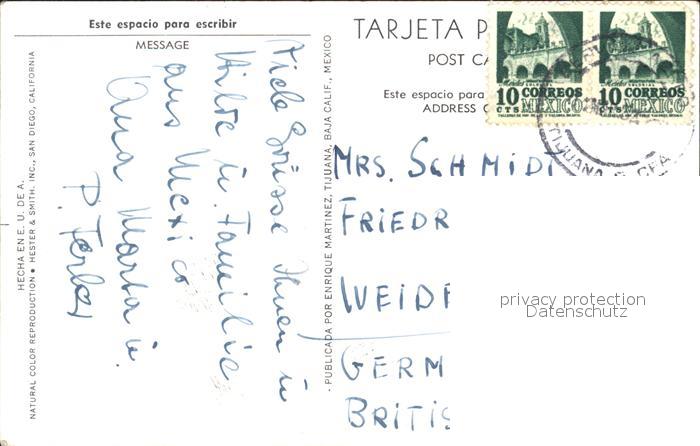 Este espacio para escribir
MESSAGE
Viele Grüsse Ihnen u
Hilde u. Familie
aus Mexico
Anna Marta u.
P.
HECHA EN E. U. DE A.
NATURAL COLOR REPRODUCTION • HESTER & SMITH, INC., SAN DIEGO, CALIFORNIA
- PUBLICADA POR ENRIQUE MARTINEZ, TIJUANA, BAJA CALIF., MEXICO
TARJETA P
POST CA
Este espacio para
ADDRESS
10 CTS CORREOS MEXICO
10 CTS CORREOS MEXICO
TIJUANA
MRS. SCHMIDT
FRIEDR
WEIDE
GERM
BRITIS
privacy protection
Datenschutz